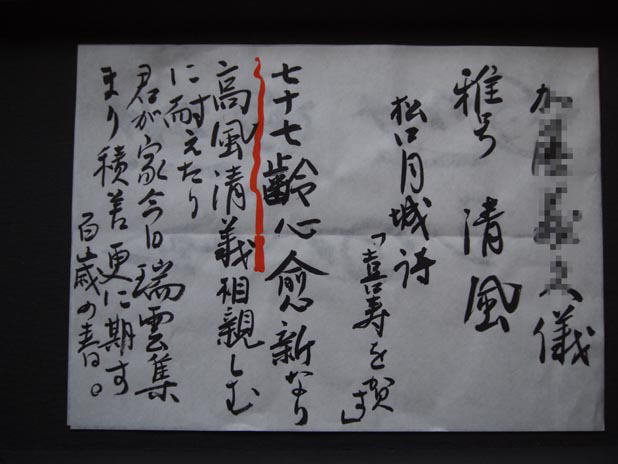 加 儀
雅号 清風
松口月城詩
「喜寿を賀す」
七十七齢心愈新なり
高風清義相親しむ
に耐えたり
君が家今日瑞雲集
まり積善更に期す
百歳の春。